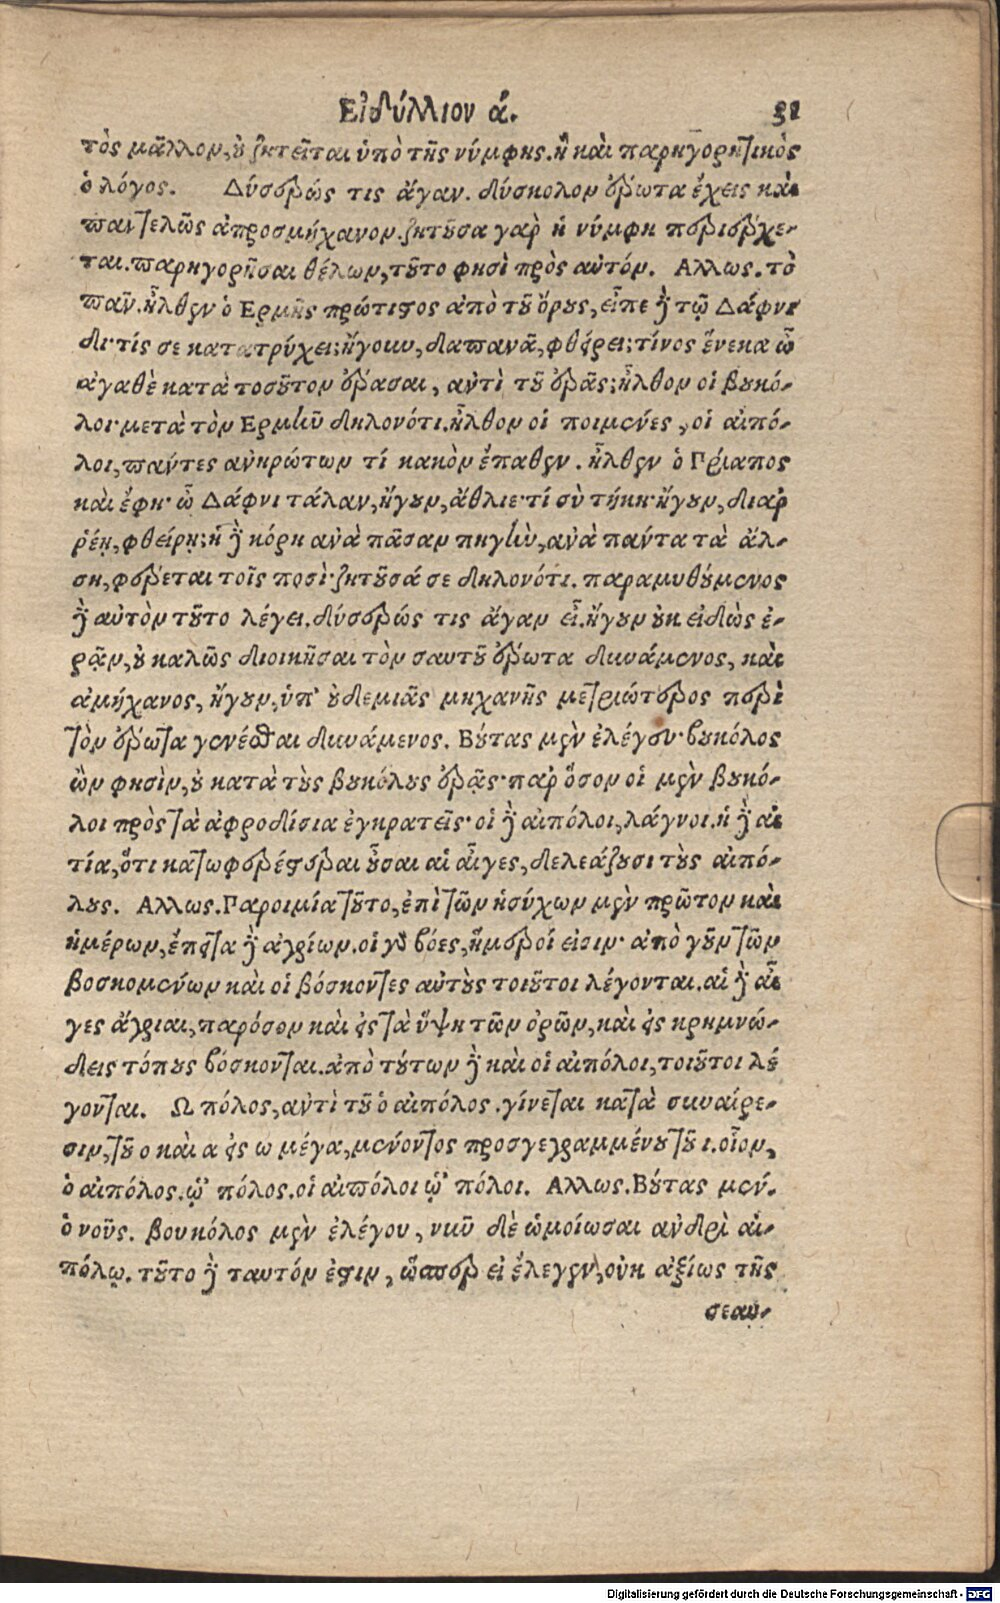 Εἰδύλλιον ά. 31
τὸς μᾶλλον, ὐ ζητεῖται ὑπὸ τῆς νύμφης. ἢ καὶ παρηγορητικὸς
ὁ λόγος. Δύσερώς τις ἄγαν. δύσκολον ἔρωτα ἔχεις καὶ
παντελῶς ἀπροσμήχανον. ζητοῦσα γαρ ἡ νύμφη περιέρχε-
ται. παρηγορῆσαι θέλων, τοῦτο φησὶ πρὸς αὐτόν. Αλλως. τὸ
πᾶν. ἦλθεν ὁ Ερμῆς πρώτιστος ἀπὸ τοῦ ὄρους, εἶπε δὲ τῷ Δάφνι
δι· τίς σε κατατρύχει; ἤγουν, δαπανᾶ, φθείρει; τίνος ἕνεκα ὦ
ἀγαθὲ κατὰ τοσοῦτον ἔρασαι, ἀντὶ τοῦ ἐρᾶς; ἦλθον οἱ βουκό-
λοι· μετὰ τὸν Ερμῆν δηλονότι. ἦλθον οἱ ποιμένες, οἱ αἰπό-
λοι, πάντες ἀνηρώτων τί κακὸν ἔπαθεν. ἦλθεν ὁ Πρίαπος
καὶ ἔφη· ὦ Δάφνι τάλαν, ἤγουν, ἄθλιε· τί σὺ τήκῃ· ἤγουν, διαρ
ῥέῃ, φθείρῃ; ἡ δὲ κόρη ἀνὰ πᾶσαν πηγὴν, ἀνὰ πάντα τὰ ἄλ-
ση, φέρεται τοῖς ποσὶ· ζητοῦσά σε δηλονότι. παραμυθούμενος
δὲ αὐτὸν τοῦτο λέγει. δύσερώς τις ἄγαν εἶ. ἤγουν οὐκ εἰδὼς ἐ-
ρᾷν, οὐ καλῶς διοικῆσαι τὸν σαυτοῦ ἔρωτα δυνάμενος, καὶ
ἀμήχανος, ἤγουν, ὑπ' οὐδεμιᾶς μηχανῆς μετριώτερος περὶ
τὸν ἔρωτα γενέσθαι δυνάμενος. Βούτας μὲν ἐλέγου· βουκόλος
ὢν φησὶν, οὐ κατὰ τοὺς βουκόλους ἐρᾷς· παρ ὅσον οἱ μὲν βουκό-
λοι πρὸς τὰ ἀφροδίσια ἐγκρατεῖς· οἱ δὲ αἰπόλοι, λάγνοι. ἡ δὲ αἰ
τία, ὅτι κατωφερέστεραι οὖσαι αἱ αἶγες, δελεάζουσι τοὺς αἰπό-
λους. Αλλως. Παροιμία τοῦτο, ἐπὶ τῶν ἡσύχων μὲν πρῶτον καὶ
ἡμέρων, ἔπειτα δὲ ἀγρίων. οἱ γὰρ βόες, ἥμεροί εἰσιν· ἀπὸ γοῦν τῶν
βοσκομένων καὶ οἱ βόσκοντες αὐτοὺς τοιοῦτοι λέγονται. αἱ δὲ αἶ
γες ἄγριαι, παρόσον καὶ εἰς τὰ ὕψη τῶν ὀρῶν, καὶ εἰς κρημνώ-
δεις τόπους βόσκονται. ἀπὸ τούτων δὲ καὶ οἱ αἰπόλοι, τοιοῦτοι λέ
γονται. Ω πόλος, ἀντὶ τοῦ ὁ αἰπόλος. γίνεται κατὰ συναίρε-
σιν, τοῦ ο καὶ α εἰς ω μέγα, μένοντος προσγεγραμμένου τοῦ ι. οἷον,
ὁ αἰπόλος. ᾡ πόλος. οἱ αἰπόλοι ᾡ πόλοι. Αλλως. Βούτας μέν.
ὁ νοῦς. βουκόλος μὲν ἐλέγου, νῦν δὲ ὡμοίωσαι ἀνδρὶ αἰ-
πόλῳ. τοῦτο δὲ ταυτόν ἐστιν, ὥσπερ εἰ ἔλεγεν, οὐκ ἀξίως τῆς
σεαυ-
Digitalisierung gefördert durch die Deutsche Forschungsgemeinschaft - DFG